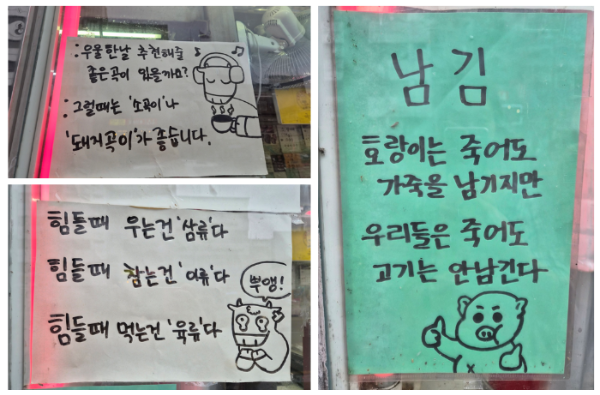 : 우울한날 추천해줄
좋은곡이 있을까요?
: 그럴때는 '소곡이'나
'돼지곡이'가 좋습니다.
힘들때 우는건 '삼류'다
힘들때 참는건 '이류'다
힘들때 먹는건 '육류'다
뿌앵!
남김
호랑이는 죽어도
가죽을 남기지만
우리들은 죽어도
고기는 안남긴다